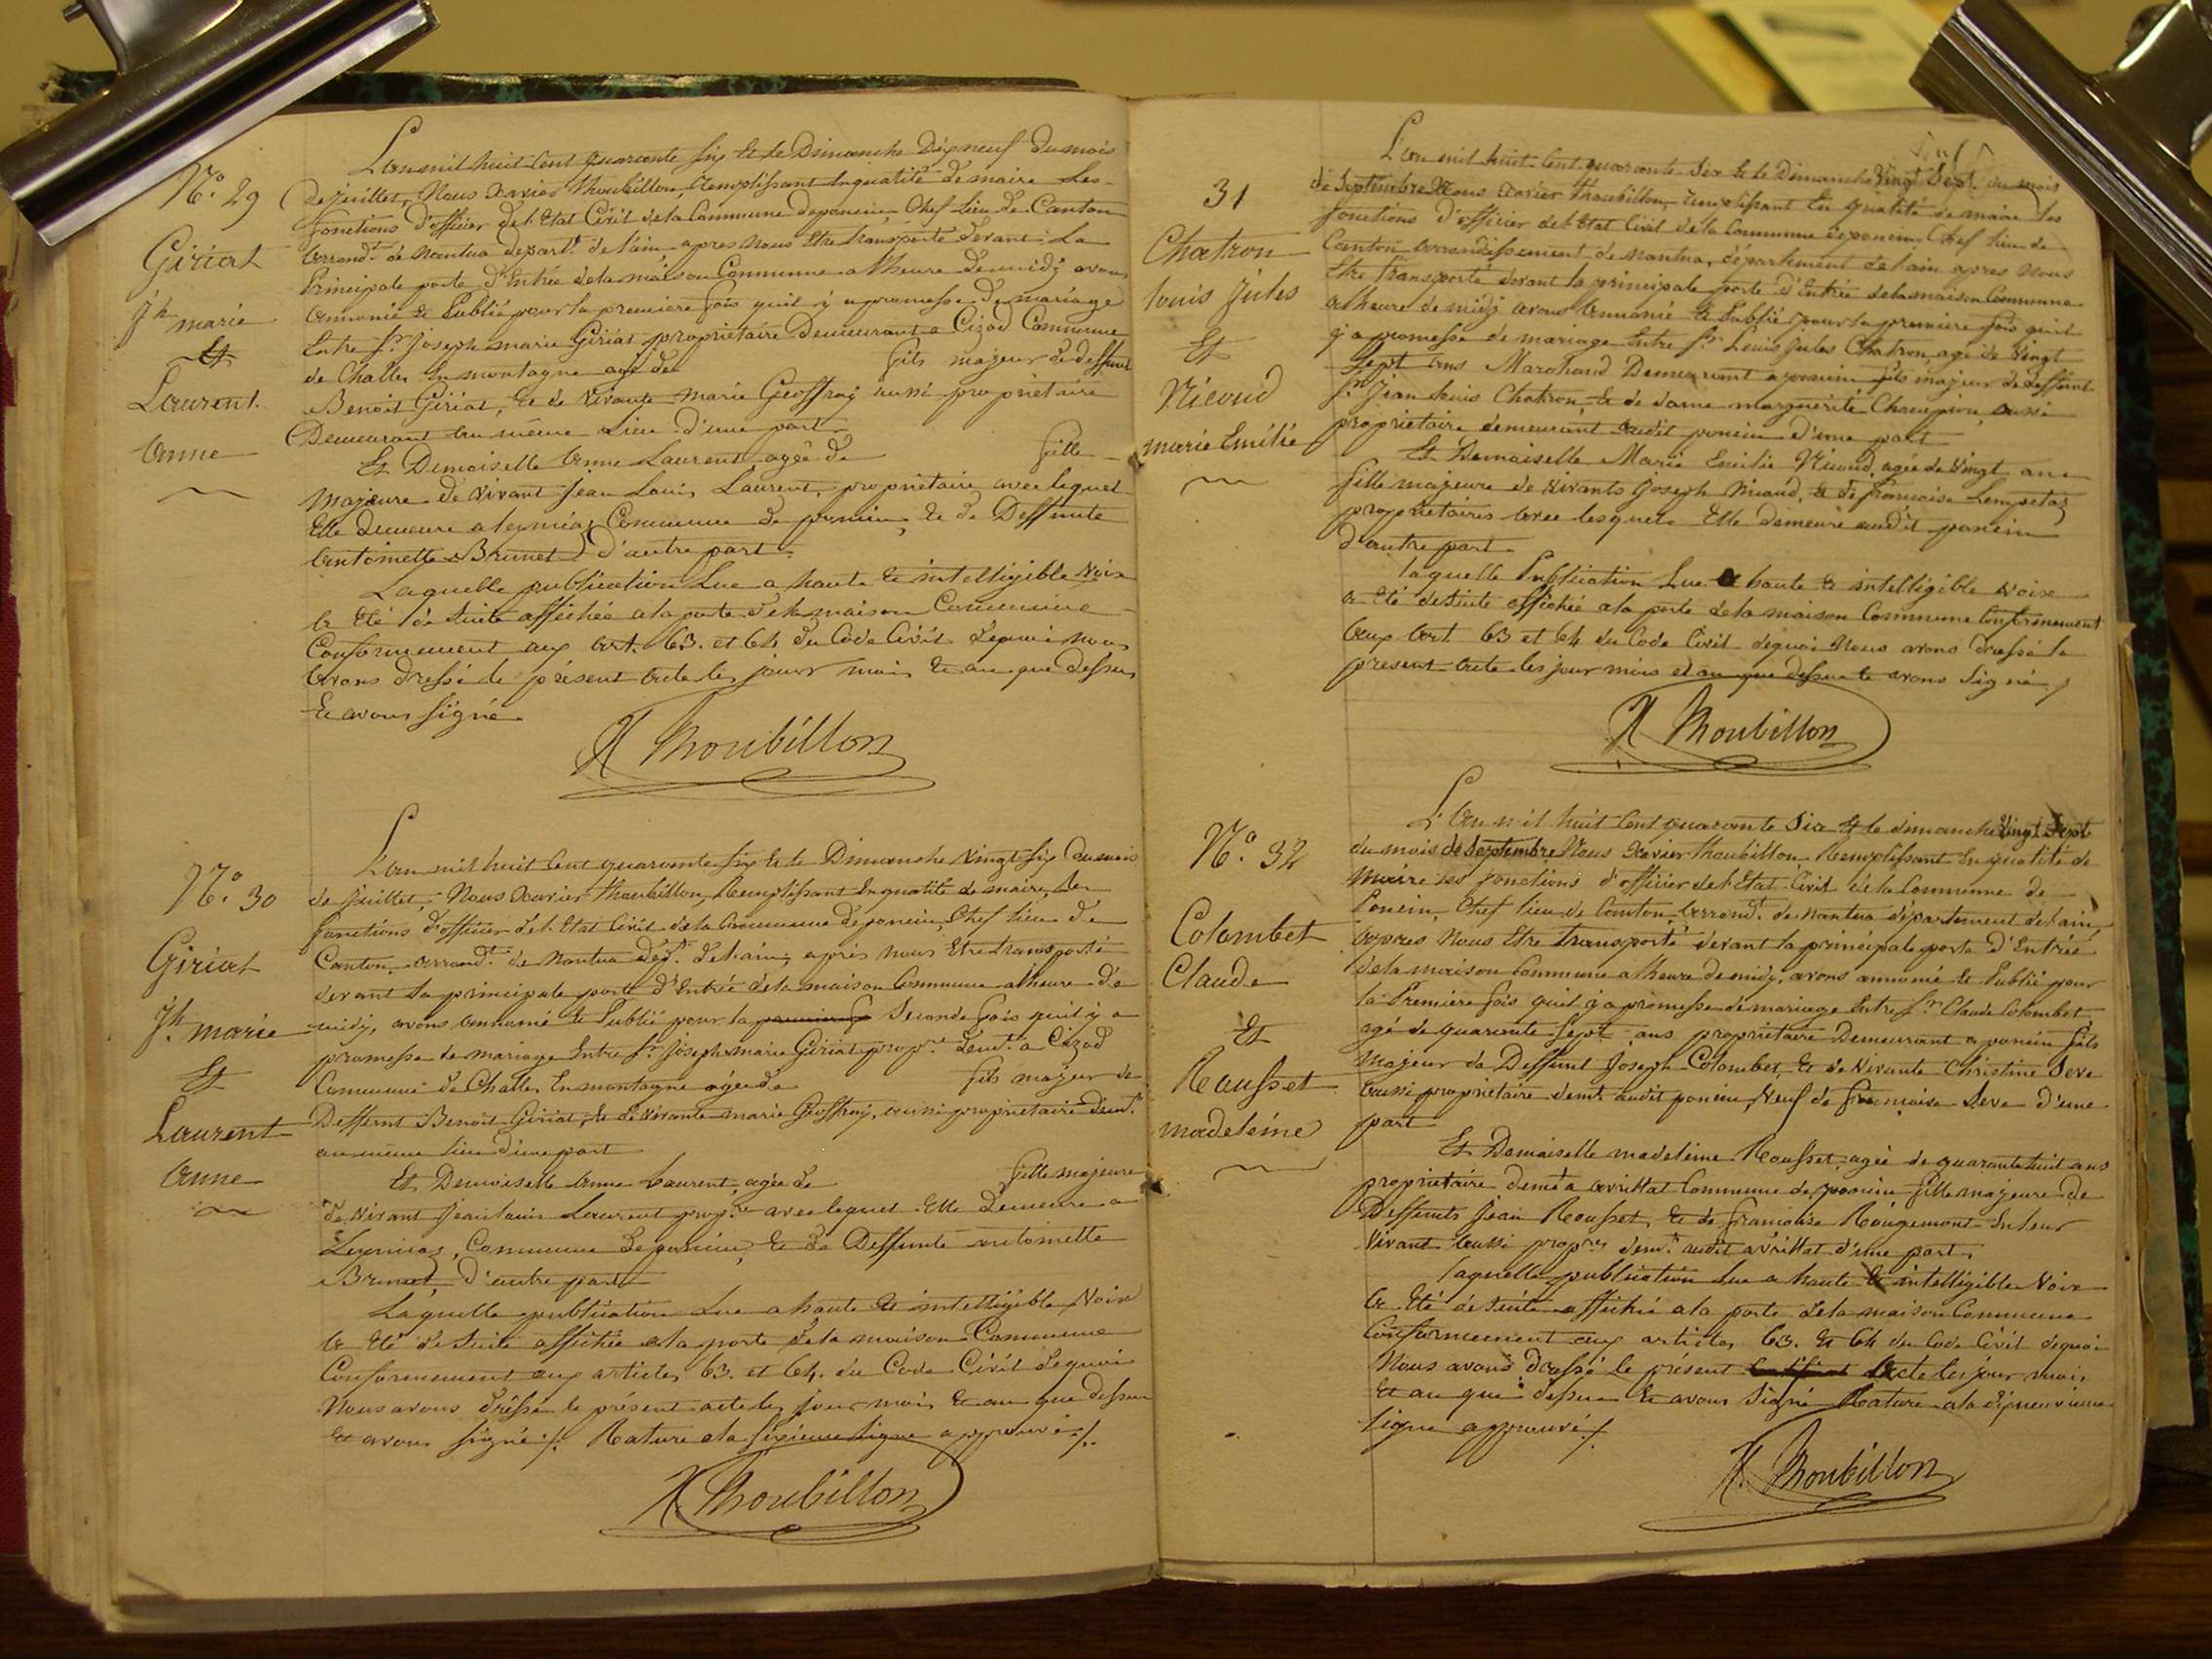 N.o 29
Giriat
Jh marie
Et
Laurent
Anne
L'an mil huit Cent quarante six & le Dimanche Dix neuf du mois
de juillet, Nous Xavier Thoubillon, Remplissant En qualité de maire les
fonctions d'officier de l'Etat Civil de la Commune de poncin, Chef lieu de Canton
arrond.t de Nantua depart.t de l'ain, apres nous Etre transporté devant la
Principale porte d'Entrée de la maison Commune a l'heure de midi avons
annoncé & Publié pour la premiere fois qu'il y a promesse de mariage
Entre Sr Joseph marie Giriat propriétaire Demeurant a Cizod Commune
de Challes En montagne agé de fils majeur de deffunt
Benoit Giriat, & de Vivante marie Geoffray aussi propriétaire
Demeurant au même Lieu d'une part
Et Demoiselle Anne Laurent agée de fille
majeure de vivant Jean Louis Laurent, propriétaire avec lequel
Elle demeure a Commune de poncin, & de Deffunte
Antoinette Brunet d'autre part
Laquelle publication Lue a haute & intelligible Voix
a Eté de suite affichée a la porte de la maison Commune
Conformement aux art. 63. et 64 du Code Civil dequoi nous
avons dressé le présent acte les jour mois & an que dessus
Et avons signé
X Thoubillon
N.o 30
Giriat
Jh. marie
Et
Laurent
Anne
L'an mil huit Cent quarante six & le Dimanche Vingt six du mois
de juillet, Nous Xavier Thoubillon, Remplissant En qualité de maire, les
fonctions d'officier de l'Etat Civil de la Commune de poncin, Chef lieu de
Canton arrond.t de Nantua dep.t de l'ain, après nous Etre transporté
devant la principale porte d'Entrée de la maison Commune a l'heure de
midy, avons annoncé & Publié pour la premiere fo Seconde fois qu'il y a
promesse de mariage Entre Sr Joseph marie Giriat prop.re demt. a Cizod
Commune de Challes En montagne agé de fils majeur de
Deffunt Benoit Giriat, & de vivante marie Geoffray, aussi propriétaire demt.
au même lieu d'une part
Et Demoiselle Anne Laurent, agée de fille majeure
de Vivant Jean louis Laurent prop.re avec lequel Elle Demeure a
Commune de poncin, & de Deffunte antoinette
Brunet, d'autre part
Laquelle publication Lue a haute & intelligible Voix
a Eté de suite affichée a la porte de la maison Commune
Conformement aux articles 63. et 64. du Code Civil dequoi
Nous avons dressé le présent acte les jour mois & an que dessus
et avons signé ./. Rature a la sixieme ligne approuvé ./.
X Thoubillon
31
Chatron
louis Jules
Et
Nicoud
marie Emilie
L'an mil huit Cent quarante Six & le Dimanche Vingt Sept du mois
de Septembre Nous Xavier Thoubillon, Remplissant En qualité de maire les
fonctions d'officier de l'Etat Civil de la Commune de poncin Chef lieu de
Canton arrondissement de Nantua, département de l'ain apres Nous
Etre Transporté devant la principale porte d'Entrée de la maison Commune
a l'heure de midy avons Annoncé & Publié pour la premiere fois qu'il
y a promesse de mariage Entre Sr Louis Jules Chatron agé de Vingt
Sept ans Marchand Demeurant a poncin fils majeur de deffunt
Sr Jean Louis Chatron, & de dame marguerite Champion, aussi
propriétaire demeurant audit poncin d'une part
Et Demoiselle Marie Emilie Nicoud, agée de Vingt ans
fille majeure de vivants Joseph Nicoud, & de françoise
propriétaires avec lesquels Elle demeure audit poncin
d'autre part
laquelle Publication Lue a haute & intelligible voix
a Eté de suite affichée a la porte de la maison Commune Conformement
aux art 63 et 64 du Code Civil dequoi Nous avons dressé le
présent acte les jour mois et an que dessus & avons Signé ./
X Thoubillon
N.o 32
Colombet
Claude
Et
Rousset
madeleine
L'an mil huit Cent quarante Six & le dimanche Vingt Sept
du mois de Septembre Nous Xavier Thoubillon Remplissant En qualité de
maire les fonctions d'officier de l'Etat Civil de la Commune de
Poncin, Chef lieu de Canton, arrond.t de Nantua département de l'ain,
apres Nous Etre transporté devant la principale porte d'Entrée
de la maison Commune a l'heure de midy, avons annoncé & Publié pour
la Premiere fois qu'il y a promesse de mariage Entre Sr. Claude Colombet
agé de quarante Sept ans propriétaire Demeurant a poncin fils
majeur de Deffunt Joseph Colombet, & de Vivante Christine Seve
aussi propriétaire demt. audit poncin, Veuf de françoise Seve d'une
part
Et Demoiselle madeleine Rousset, agée de quarante huit ans
propriétaire demt a avrillat Commune de poncin fille majeure de
Deffunts Jean Rousset, & de françoise Rougemont En leur
Vivant aussi prop.res demt. audit avrillat d'une part.
laquelle publication Lue a haute & intelligible Voix
a Eté de suite affichée a la porte de la maison Commune
Conformement aux articles 63. Et 64 du Code Civil dequoi
Nous avons dressé le présent acte les jour mois
Et an que dessus & avons Signé Rature a la dixneuvieme
ligne approuvé ./.
X. Thoubillon